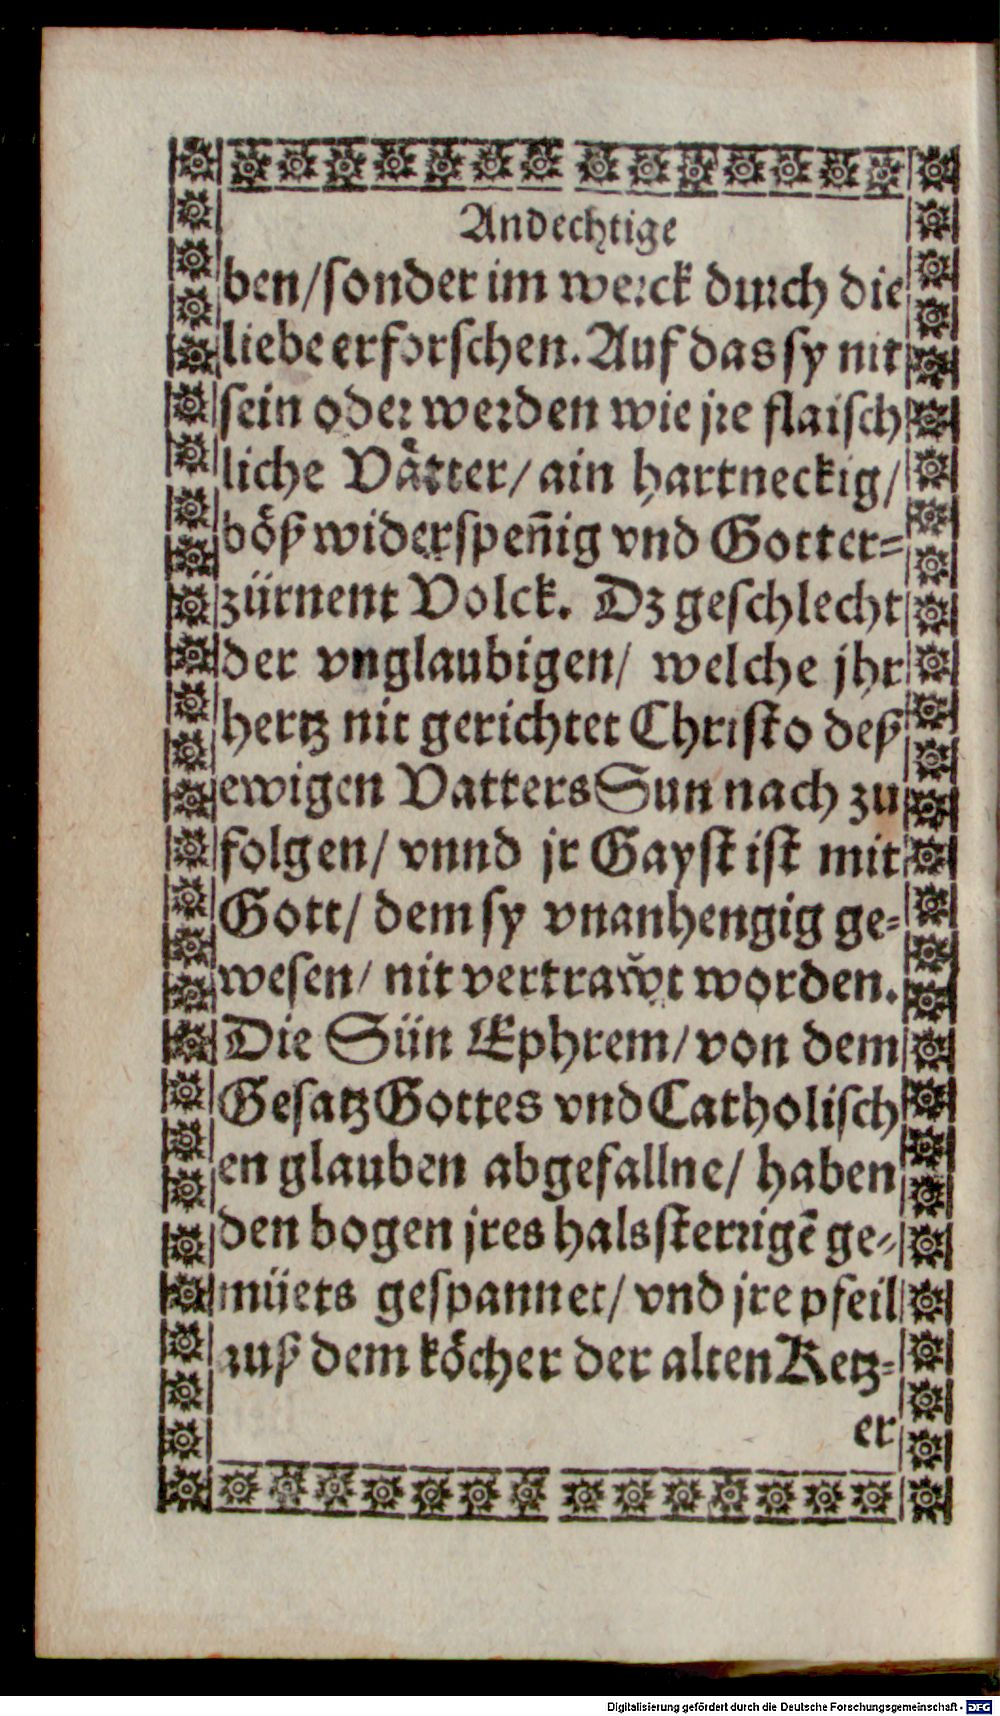 Andechtige
ben/sonder im werck durch die
liebe erforschen. Auf das sy nit
sein oder werden wie jre flaisch
liche Vaͤtter/ ain hartneckig/
boͤß widerspen̄ig vnd Gotter=
zürnent Volck. Dz geschlecht
der vnglaubigen/ welche jhr
hertz nit gerichtet Christo deß
ewigen Vatters Sun nach zu
folgen/ vnnd jr Gayst ist mit
Gott/ dem sy vnanhengig ge=
wesen/ nit vertraw̌t worden.
Die Sün Ephrem/ von dem
Gesatz Gottes vnd Catholisch
en glauben abgefallne/ haben
den bogen jres halssterrigē ge=
müets gespannet/ vnd jre pfeil
auß dem koͤcher der alten Ketz=
er
Digitalisierung gefördert durch die Deutsche Forschungsgemeinschaft - DFG